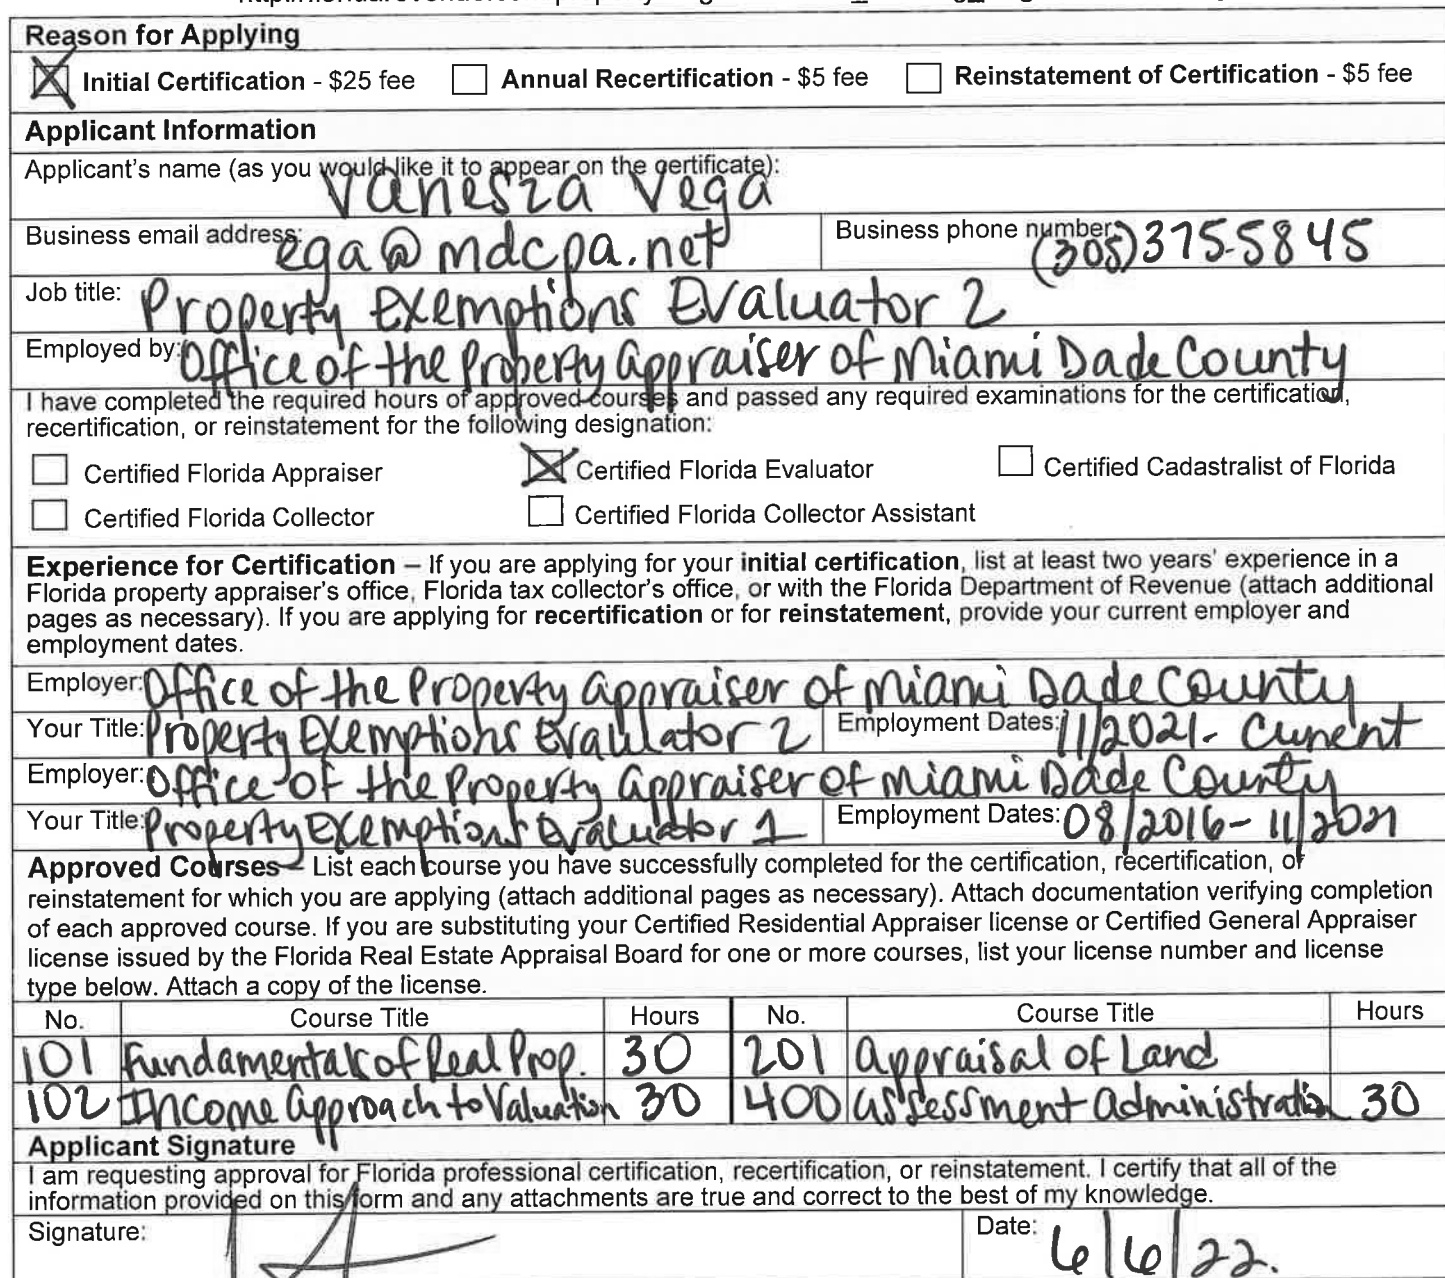 Reason for Applying
Initial Certification - $25 fee Annual Recertification - $5 fee Reinstatement of Certification - $5 fee
Applicant Information
Applicant's name (as you would like it to appear on the certificate):
Vanessa Vega
Business email address: ega@mdcpa.net Business phone number: (305)375-5845
Job title: Property Exemptions Evaluator 2
Employed by: Office of the Property Appraiser of Miami Dade County
I have completed the required hours of approved courses and passed any required examinations for the certification,
recertification, or reinstatement for the following designation:
Certified Florida Appraiser Certified Florida Evaluator Certified Cadastralist of Florida
Certified Florida Collector Certified Florida Collector Assistant
Experience for Certification – If you are applying for your initial certification, list at least two years' experience in a
Florida property appraiser's office, Florida tax collector's office, or with the Florida Department of Revenue (attach additional
pages as necessary). If you are applying for recertification or for reinstatement, provide your current employer and
employment dates.
Employer: Office of the Property Appraiser of Miami Dade County
Your Title: Property Exemptions Evaulator 2 Employment Dates: 11/2021- Current
Employer: Office of the Property Appraiser of Miami Dade County
Your Title: Property Exemptions Evaluator 1 Employment Dates: 08/2016-11/2021
Approved Courses – List each course you have successfully completed for the certification, recertification, or
reinstatement for which you are applying (attach additional pages as necessary). Attach documentation verifying completion
of each approved course. If you are substituting your Certified Residential Appraiser license or Certified General Appraiser
license issued by the Florida Real Estate Appraisal Board for one or more courses, list your license number and license
type below. Attach a copy of the license.
No. Course Title Hours No. Course Title Hours
101 Fundamentals of Real Prop. 30 201 Appraisal of Land
102 Income Approach to Valuation 30 400 Assessment Administration 30
Applicant Signature
I am requesting approval for Florida professional certification, recertification, or reinstatement. I certify that all of the
information provided on this form and any attachments are true and correct to the best of my knowledge.
Signature: Date: 6/6/22.